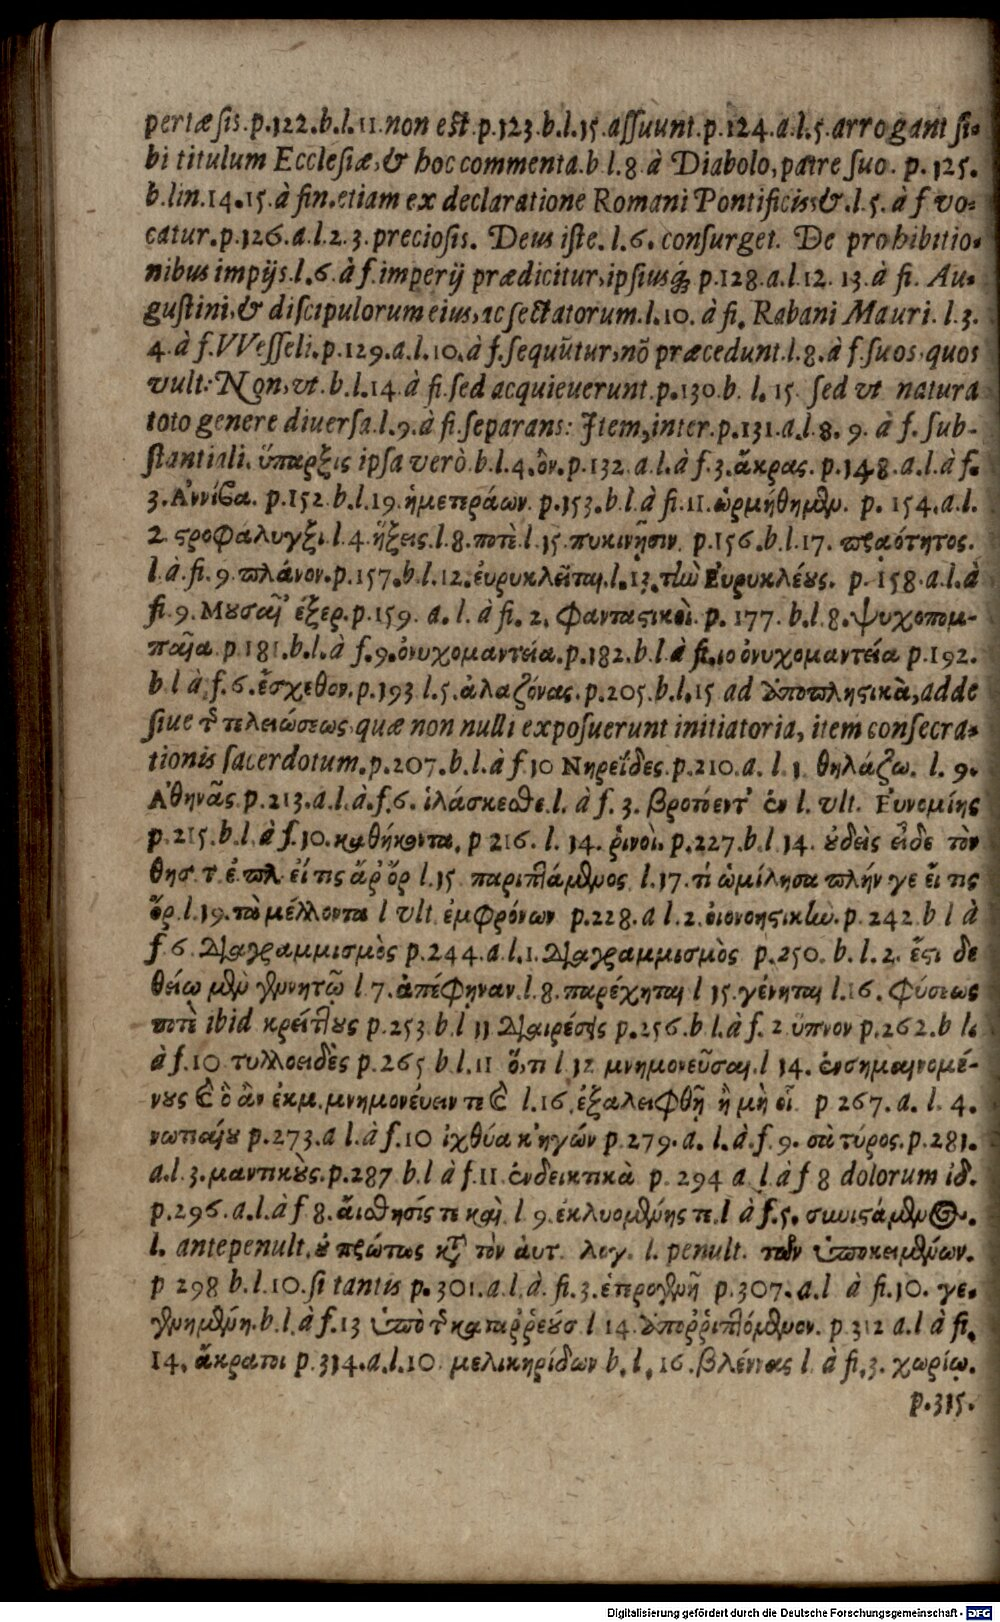 pertæsis.p.122.b.l.11.non est.p.123.b.l.15.assuunt.p.124.a.l.5.arrogant si-
bi titulum Ecclesiæ,& hoc commenta.b l.8.à Diabolo,patre suo. p. 125.
b.lin.14.15.à fin.etiam ex declaratione Romani Pontificis:&.l.5. à f vo-
catur.p.126.a.l.2.3.preciosis. Deus iste. l.6. consurget. De prohibitio-
nibus impijs.l.6.à f.imperij prædicitur,ipsiusq; p.128.a.l.12. 13.à fi. Au-
gustini,& discipulorum eius,ac sectatorum.l.10. à fi. Rabani Mauri. l.3.
4.à f.VVesseli.p.129.a.l.10.à f.sequūtur,nō præcedunt.l.8.à f.suos,quos
vult: Non,vt.b.l.14.à fi.sed acquieuerunt.p.130.b. l. 15. sed vt natura
toto genere diuersa.l.9.à fi.separans: Item,inter.p.131.a.l.8. 9. à f. sub-
stantiali. ὕπαρξις ipsa verò.b.l.4.ὂν.p.132.a.l.à f.3.ἄκρας. p.148.a.l.à f.
3.Ἀννίϐα. p.152.b.l.19.ἡμετεράων. p.153.b.l.à fi.11.ὡρμήθημεν. p. 154.a.l.
2 ϛροφάλυγξι.l.4.ἥξεις.l.8.ποτὲ.l.15.πυκινῇσιν. p.156.b.l.17. πραότητος.
l.à.fi.9.πλάνον.p.157.b.l.12.ἐυρυκλεῖται.l.13.τὴν Ἐυρυκλέους. p. 158.a.l.à
fi.9.Μουσαῖ' ἐξερ.p.159. a. l. à fi. 2. φανταϛικοὶ. p. 177. b.l.8.ψυχοπομ-
παῖα.p.181.b.l.à f.9.ὀνυχομαντεία.p.182.b.l.à fi.10 ὀνυχομαντεία p.192.
b l à f.6.ἔσχεθον.p.193.l.5.ἀλαζόνας.p.205.b.l.15 ad ἀποπληϛικὰ,adde
siue τῆς τελειώσεως,quæ non nulli exposuerunt initiatoria, item consecra-
tionis sacerdotum.p.207.b.l.à f.10 Νηρεΐδες.p.210.a. l.1. θηλάζω. l. 9.
Ἀθηνᾶς.p.213.a.l.à.f.6. ἱλάσκεσθε.l. à f. 3. βροτόεντ' ἐν l. vlt. Ἐυνομίης
p.215.b.l.à f.10.καθήκοντα. p 216. l. 14. ῥινοὶ. p.227.b.l 14. οὐδεὶς εἶδε τὸν
θησ.τ.ἐ.πλ.εἴ τις ἄρ' ὄρ l.15. παριπτάμενος l.17.τί ὡμίλησα πλήν γε εἴ τις
ὄρ.l.19.τὰ μέλλοντα l vlt ἐμφρόνων p.228.a l.2.οἰονοηϛικὴν.p. 242 b l à
f 6 Διαγραμμισμὸς p.244.a.l.1.Διαγραμμισμὸς p.250. b. l.2. ἔϛι δε
θείω μὲν γεννητῷ l 7.ἀπέφηναν.l.8.παρέχηται l 15.γένηται l.16. φύσεως
ποτὲ ibid κρείττους p.253 b.l 11 Διαιρέσεις p.256.b l.à f. 2 ὕπνον p.262.b l.
à f.10 τυλλοειδὲς p.265 b l.11 ὅ,τι l 12 μνημονεῦσαι.l 14. ἐνσημαινομέ-
νους καὶ ὃ ἂν ἐκμ.μνημονέυειν τε καὶ l.16.ἐξαλειφθῇ ἢ μὴ οἷ p 267.a. l. 4.
νωτιαίου p.273.a l.à f.10 ἰχθύα κ'ηγών p 279.a. l.à.f.9. σὰ τύρος.p.281.
a.l.3.μαντικοὺς.p.287 b l à f.11 ἐνδεικτικὰ p. 294 a l à f 8 dolorum id.
p.296.a.l.à f 8.ἄισθησίς τε καὶ. l 9.ἐκλυομένης τε.l à f.5. συνιϛάμενος.
l. antepenult.οὐ πρώτως κατὰ τὸν ἀυτ. λογ. l. penult. τῶν ὑποκειμένων.
p 298 b.l.10.si tantis p.301.a.l.à. fi.3.ἑτερογενῆ p.307.a.l à fi.10. γε-
γενημένη.b.l.à f.13 ὑπὸ τῆς καταῤῥεύσ l 14.ἀποῤῥιπτόμενον. p.312 a.l à fi.
14. ἄκρατοι p.314.a.l.10 μελικηρίδων b. l. 16.βλέννας l. à fi.3. χωρίῳ.
p.315.
Digitalisierung gefördert durch die Deutsche Forschungsgemeinschaft - DFG